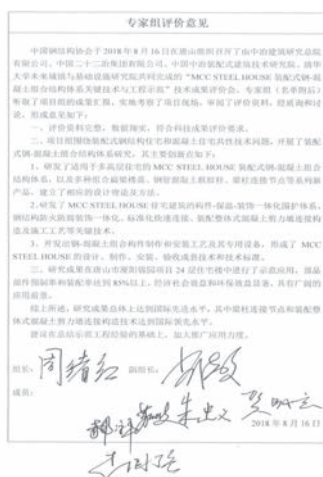 专家组评价意见
中国钢结构协会于2018年8月16日在唐山组织召开了由中冶建筑研究总院
有限公司、中国二十二冶集团有限公司、中国中冶装配式建筑技术研究院、清华
大学未来城镇与基础设施研究院共同完成的“MCC STEEL HOUSE 装配式钢-混
凝土组合结构体系关键技术与工程示范”技术成果评价会。专家组(名单附后)
听取了项目组的成果汇报,实地考察了项目现场,审阅了评价资料,经质询和讨
论,形成意见如下:
一、评价资料完整,数据翔实,符合科技成果评价要求。
二、项目组围绕装配式钢结构住宅和混凝土住宅共性技术问题,开展了装配
式钢-混凝土组合结构体系研究,其主要创新点如下:
1、研发了适用于多高层住宅的 MCC STEEL HOUSE 装配式钢-混凝土组合
结构体系,以及多种组合扁梁楼盖、钢管混凝土组合柱、梁柱连接节点等系列新
产品,建立了相应的设计理论及方法。
2、研发了 MCC STEEL HOUSE 住宅建筑的构件-保温-装饰一体化围护体系、
钢结构防火防腐装饰一体化、标准化快速连接、装配整体式混凝土剪力墙连接构
造及施工工艺等关键技术。
3、开发出钢-混凝土组合构件制作和安装工艺及其专用设备,形成了 MCC
STEEL HOUSE 的设计、制作、安装、验收成套技术和技术标准。
三、研究成果在唐山市浭阳锦园项目24层住宅楼中进行了示范应用,部品
部件预制率和装配率达到85%以上,经济社会效益和环保效益显著,具有广阔的
应用前景。
综上所述,研究成果总体上达到国际先进水平,其中梁柱连接节点和装配整
体式混凝土剪力墙连接构造技术达到国际领先水平。
建议在总结示范工程经验的基础上,加大推广应用力度。
组长:周绪红 副组长:
成员:
朱忠义
2018 年 8 月 16 日